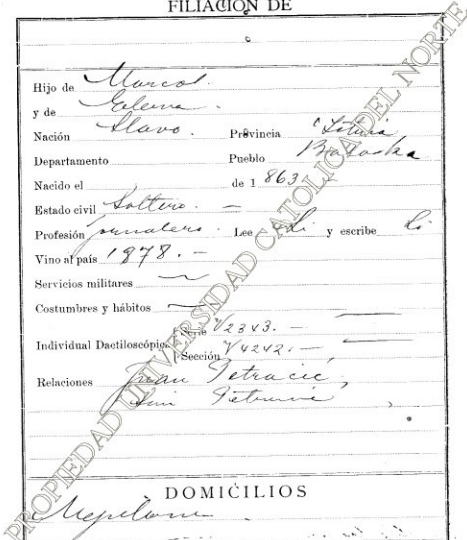 FILIACIÓN DE
Hijo de Marcos.
y de Elena.
Nación Slavo. Provincia
Departamento Pueblo
Nacido el de 1 863
Estado civil Soltero. —
Profesión jornalero. Lee Si y escribe Si
Vino al país 1978. —
Servicios militares —
Costumbres y hábitos —
Individual Dactiloscópica Serie V2343. —
Sección V4242. —
Relaciones Juan Petracic,
Petracic,
DOMICILIOS
Mejillones
PROPIEDAD UNIVERSIDAD CATOLICA DEL NORTE